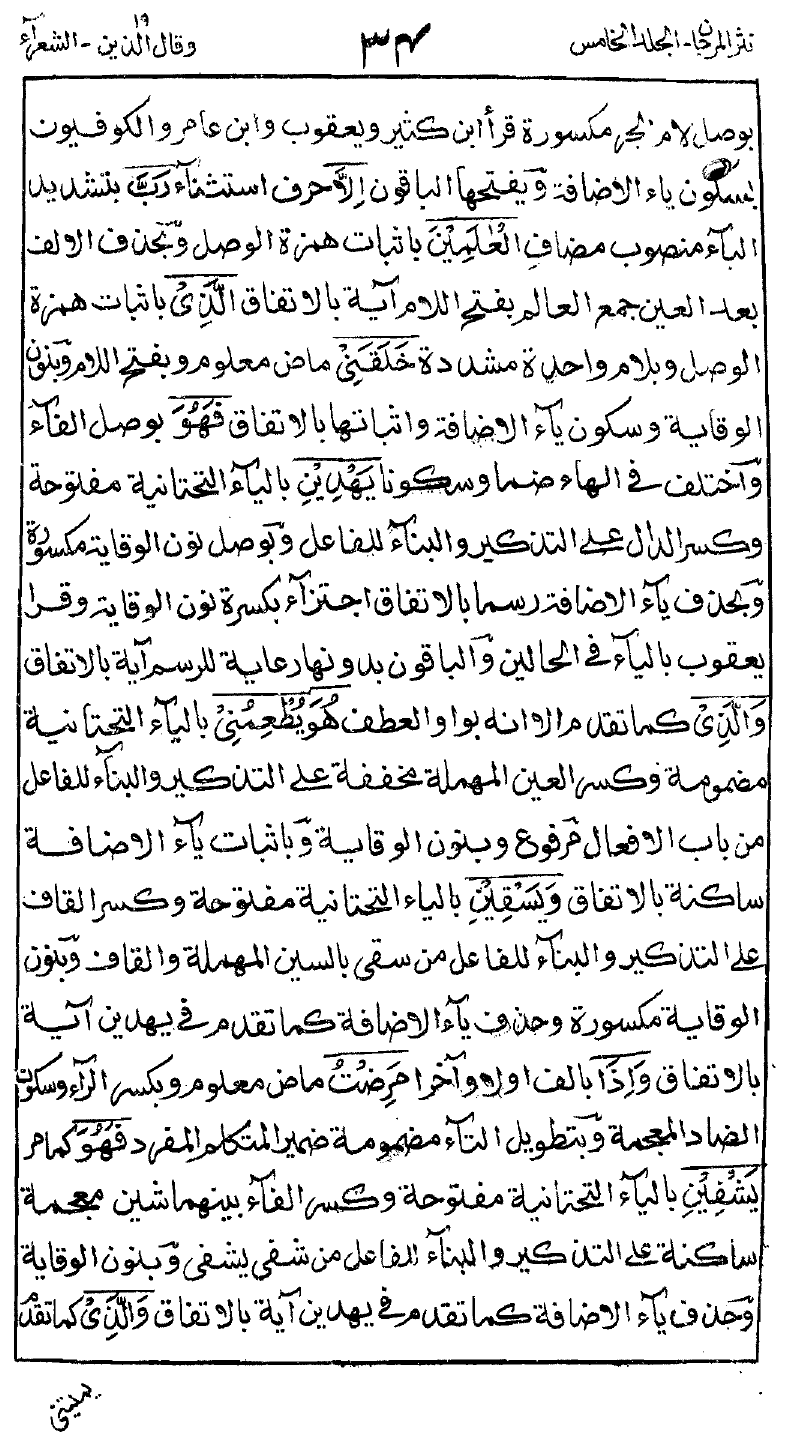 نثر المرجان - الجلد الخامس
٣٤
وقال الذين ١٩ - الشعرآء
بوصل لام الجر مكسورة قرأ ابن كثير ويعقوب وابن عامر والكوفيون
بسكون ياء الاضافة ويفتحها الباقون اِلَّا حرف استثنآء رَبَّ بتشديد
البآء منصوب مضاف الْعٰلَمِيْنَ باثبات همزة الوصل وبحذف الالف
بعد العين جمع العالم بفتح اللام آية بالاتفاق الَّذِىْ باثبات همزة
الوصل وبلام واحدة مشددة خَلَقَنِىْ ماض معلوم وبفتح اللام وبنون
الوقاية وسكون يآء الاضافة واثباتها بالاتفاق فَهُوَ بوصل الفآء
وآختلف فى الهاء ضما وسكونا يَهْدِيْنِ باليآء التحتانية مفتوحة
وكسر الدال على التذكير والبنآء للفاعل وبوصل نون الوقاية مكسورة
وبحذف يآء الاضافة رسما بالاتفاق اجتزآء بكسرة نون الوقاية وقرا
يعقوب باليآء فى الحالين والباقون بدونها رعاية للرسم آية بالاتفاق
وَالَّذِىْ كما تقدم الا انه بواو العطف هُوَ يُطْعِمُنِىْ باليآء التحتانية
مضمومة وكسر العين المهملة مخففة على التذكير والبنآء للفاعل
من باب الافعال مرفوع وبنون الوقاية وباثبات يآء الاضافة
ساكنة بالاتفاق وَيَسْقِيْنِ بالياء التحتانية مفتوحة وكسر القاف
على التذكير والبنآء للفاعل من سقى بالسين المهملة والقاف وبنون
الوقاية مكسورة وحذف يآء الاضافة كما تقدم فى يهدين آئية
بالاتفاق وَاِذَا بالف اولا وآخرا مَرِضْتُ ماض معلوم وبكسر الرآء وسكون
الضاد المعجمة وبتطويل التآء مضمومة ضمير المتكلم المفرد فَهُوَ كما مر
يَشْفِيْنِ باليآء التحتانية مفتوحة وكسر الفآء بينهما شين معجمة
ساكنة على التذكير والبنآء للفاعل من شفى يشفى وبنون الوقاية
وحذف يآء الاضافة كما تقدم فى يهدين آية بالاتفاق وَالَّذِىْ كما تقدم
يميتنى